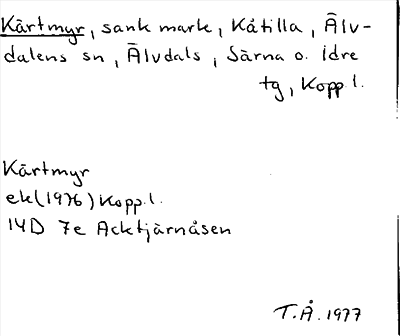 Kärtmyr, sank mark, Kåtilla, Älv-
dalens sn, Älvdals, Särna o. Idre
tg, Kopp l.
Kärtmyr
ek (1976) Kopp. l.
14D 7e Acktjärnåsen
T.Å. 1977